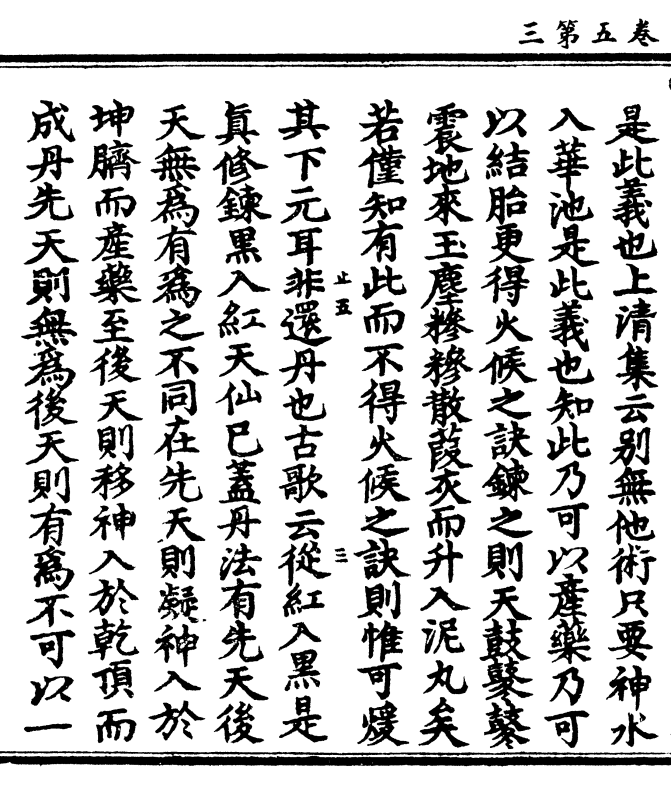 卷五第三
是此義也上清集云別無他術只要神水
入華池是此義也知此乃可以產藥乃可
以結胎更得火候之訣鍊之則天鼓鼕鼕
震地來玉塵糝糝散葭灰而升入泥丸矣
若僅知有此而不得火候之訣則惟可煖
止五
三
其下元耳非還丹也古歌云從紅入黑是
眞修鍊黑入紅天仙已蓋丹法有先天後
天無爲有爲之不同在先天則凝神入於
坤臍而產藥至後天則移神入於乾頂而
成丹先天則無爲後天則有爲不可以一